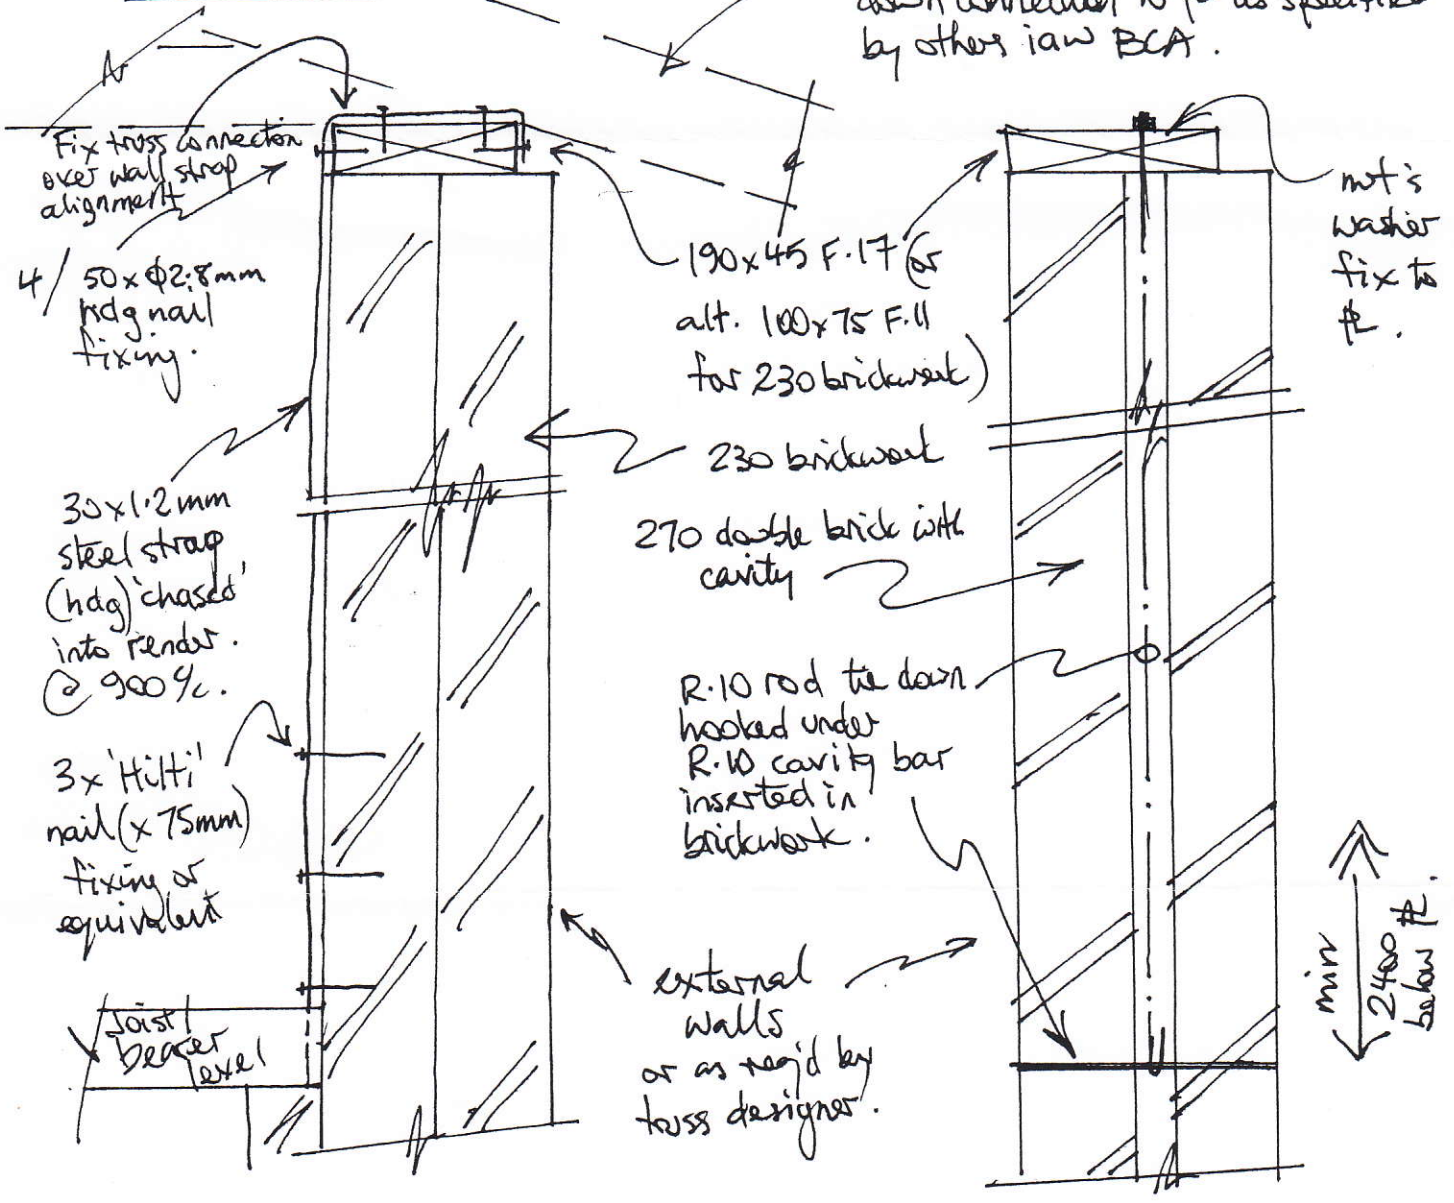 by others iaw BCA.
Fix truss connection
over wall strap
alignment
4/ 50xφ2.8mm
hdg nail
fixing.
30x1.2mm
steel strap
(hdg) 'chased'
into render.
@ 900 c/c.
3x 'Hilti'
nail (x 75mm)
fixing or
equivalent
Joist/
bearer
level
190x45 F.17 (or
alt. 100x75 F.11
for 230 brickwork)
230 brickwork
270 double brick with
cavity
R.10 rod tie down
hooked under
R.10 cavity bar
inserted in
brickwork.
external
walls
or as req'd by
truss designer.
nut &
washer
fix to
PL.
min
2400
below PL.